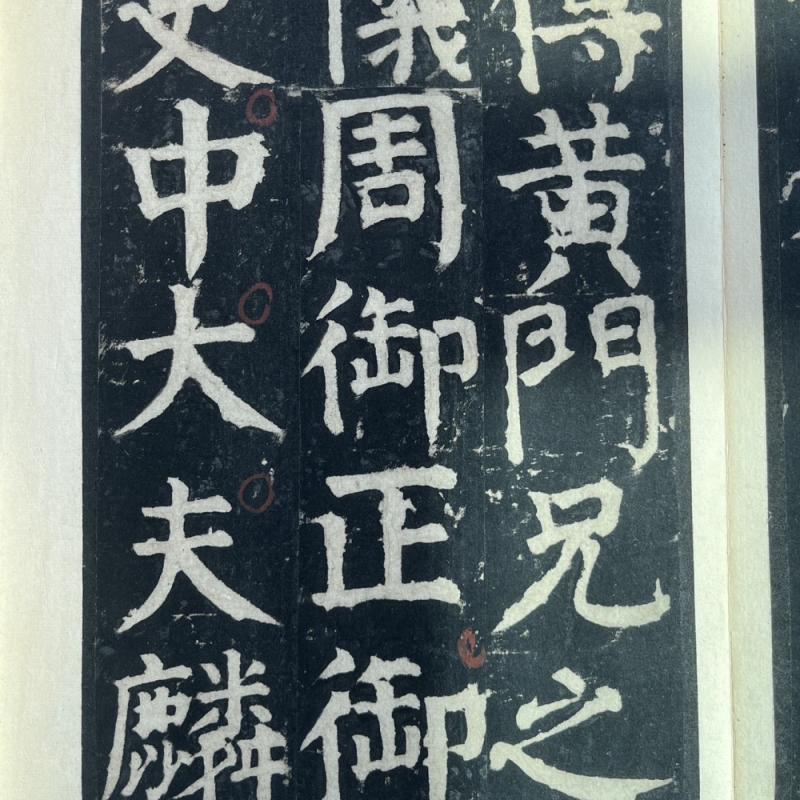 傳黃門兄之
儀周御正御
史中大夫麟